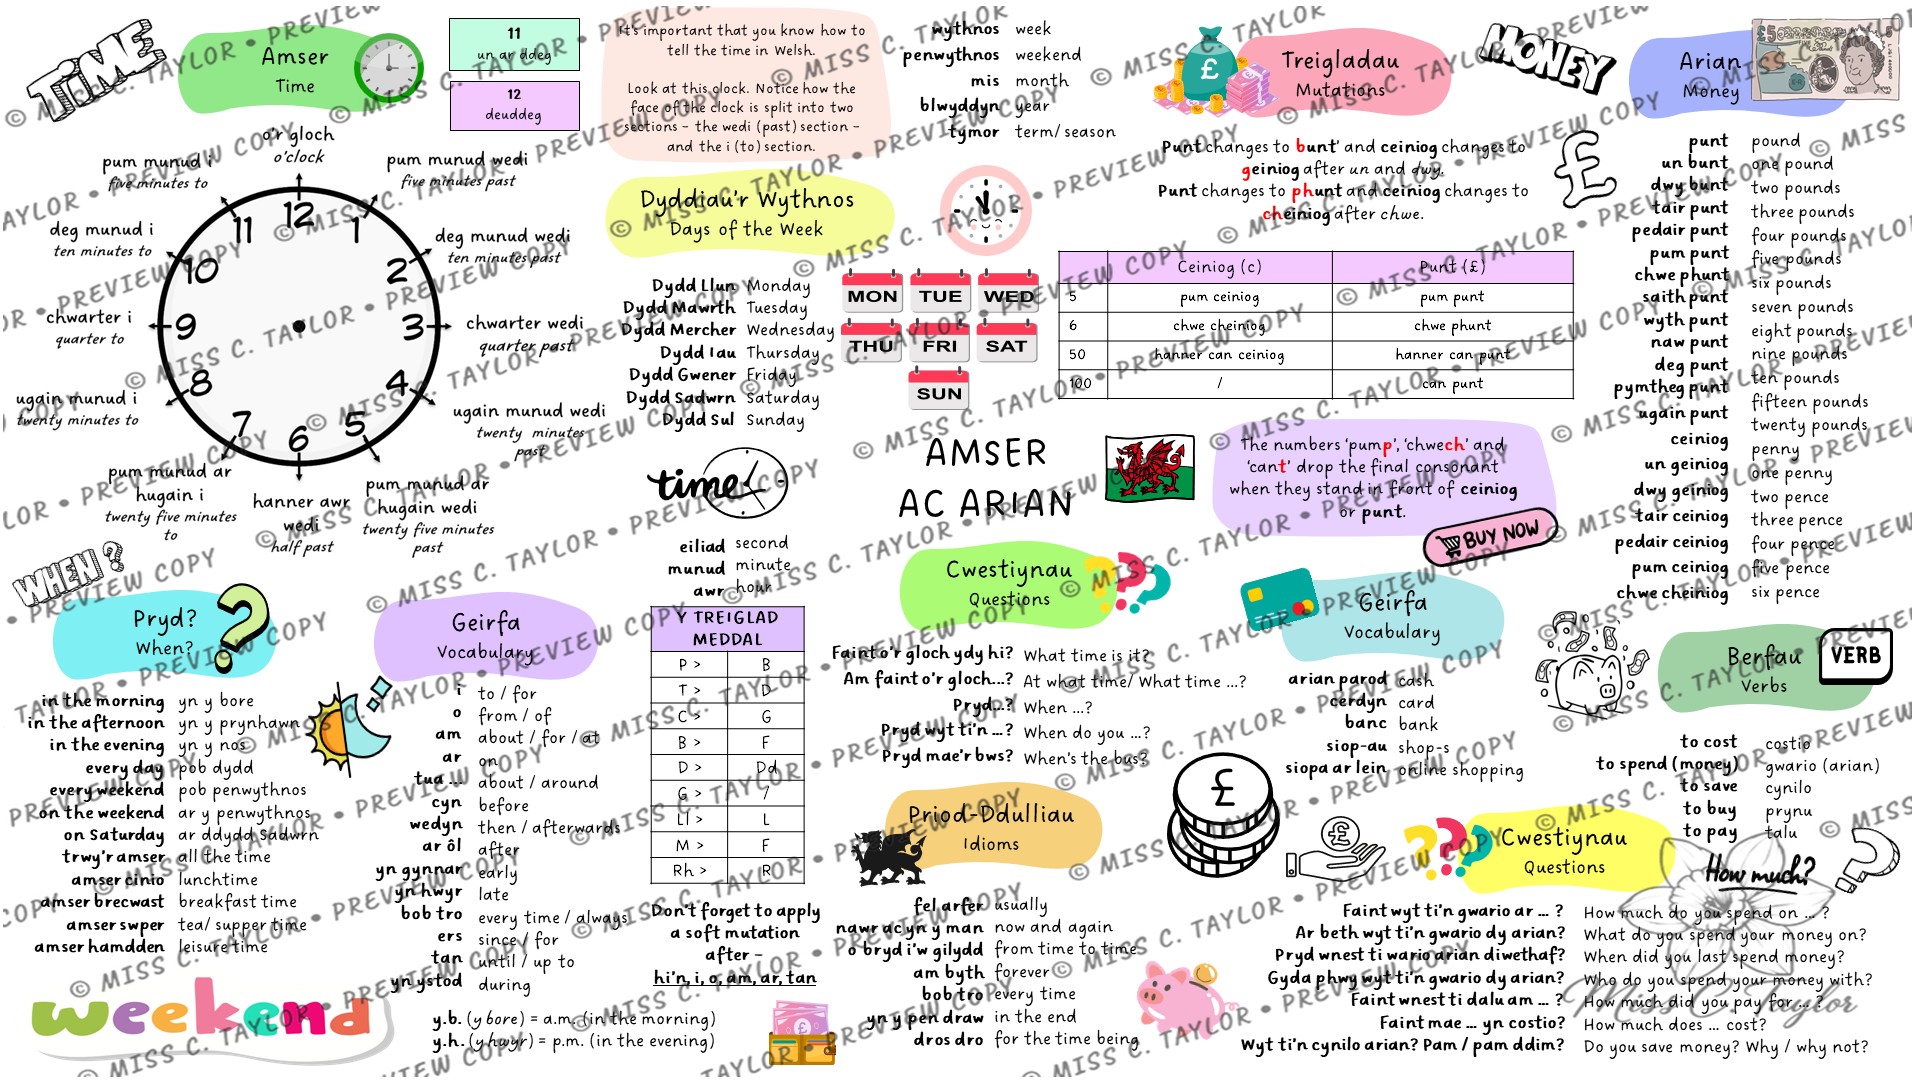 TIME
Amser
Time
11
un ar ddeg
12
deuddeg
o'r gloch
o'clock
pum munud wedi
five minutes past
deg munud wedi
ten minutes past
chwarter wedi
quarter past
ugain munud wedi
twenty minutes
past
pum munud ar
hugain wedi
twenty five minutes
past
hanner awr
wedi
half past
pum munud ar
hugain i
twenty five minutes
to
ugain munud i
twenty minutes to
chwarter i
quarter to
deg munud i
ten minutes to
pum munud i
five minutes to
12
1
2
3
4
5
6
7
8
9
10
11
It's important that you know how to
tell the time in Welsh.
Look at this clock. Notice how the
face of the clock is split into two
sections - the wedi (past) section -
and the i (to) section.
wythnos week
penwythnos weekend
mis month
blwyddyn year
tymor term/ season
Dyddiau'r Wythnos
Days of the Week
Dydd Llun Monday
Dydd Mawrth Tuesday
Dydd Mercher Wednesday
Dydd Iau Thursday
Dydd Gwener Friday
Dydd Sadwrn Saturday
Dydd Sul Sunday
MON TUE WED
THU FRI SAT
SUN
time
AMSER
AC ARIAN
eiliad second
munud minute
awr hour
WHEN?
Pryd?
When?
in the morning yn y bore
in the afternoon yn y prynhawn
in the evening yn y nos
every day pob dydd
every weekend pob penwythnos
on the weekend ar y penwythnos
on Saturday ar ddydd Sadwrn
trwy'r amser all the time
amser cinio lunchtime
amser brecwast breakfast time
amser swper tea/ supper time
amser hamdden leisure time
weekend
Geirfa
Vocabulary
i to / for
o from / of
am about / for / at
ar on
tua ... about / around
cyn before
wedyn then / afterwards
ar ôl after
yn gynnar early
yn hwyr late
bob tro every time / always
ers since / for
tan until / up to
yn ystod during
y.b. (y bore) = a.m. (in the morning)
y.h. (y hwyr) = p.m. (in the evening)
Y TREIGLAD
MEDDAL
P > B
T > D
C > G
B > F
D > Dd
G > /
Ll > L
M > F
Rh > R
Don't forget to apply
a soft mutation
after -
hi'n, i, o, am, ar, tan
Cwestiynau
Questions
Faint o'r gloch ydy hi? What time is it?
Am faint o'r gloch...? At what time/ What time ...?
Pryd...? When ...?
Pryd wyt ti'n ...? When do you ...?
Pryd mae'r bws? When's the bus?
Priod-Ddulliau
Idioms
fel arfer usually
nawr ac yn y man now and again
o bryd i'w gilydd from time to time
am byth forever
bob tro every time
yn y pen draw in the end
dros dro for the time being
Treigladau
Mutations
Punt changes to bunt' and ceiniog changes to
geiniog after un and dwy.
Punt changes to phunt and ceiniog changes to
cheiniog after chwe.
Ceiniog (c) Punt (£)
5 pum ceiniog pum punt
6 chwe cheiniog chwe phunt
50 hanner can ceiniog hanner can punt
100 / can punt
The numbers 'pump', 'chwech' and
'cant' drop the final consonant
when they stand in front of ceiniog
or punt.
BUY NOW
MONEY
Arian
Money
£5
£
punt pound
un bunt one pound
dwy bunt two pounds
tair punt three pounds
pedair punt four pounds
pum punt five pounds
chwe phunt six pounds
saith punt seven pounds
wyth punt eight pounds
naw punt nine pounds
deg punt ten pounds
pymtheg punt fifteen pounds
ugain punt twenty pounds
ceiniog penny
un geiniog one penny
dwy geiniog two pence
tair ceiniog three pence
pedair ceiniog four pence
pum ceiniog five pence
chwe cheiniog six pence
Geirfa
Vocabulary
arian parod cash
cerdyn card
banc bank
siop-au shop-s
siopa ar lein online shopping
Berfau
Verbs
VERB
to cost costio
to spend (money) gwario (arian)
to save cynilo
to buy prynu
to pay talu
Cwestiynau
Questions
How much?
Faint wyt ti'n gwario ar ... ? How much do you spend on ... ?
Ar beth wyt ti'n gwario dy arian? What do you spend your money on?
Pryd wnest ti wario arian diwethaf? When did you last spend money?
Gyda phwy wyt ti'n gwario dy arian? Who do you spend your money with?
Faint wnest ti dalu am ... ? How much did you pay for ... ?
Faint mae ... yn costio? How much does ... cost?
Wyt ti'n cynilo arian? Pam / pam ddim? Do you save money? Why / why not?
Miss C Taylor
© MISS C. TAYLOR • PREVIEW COPY